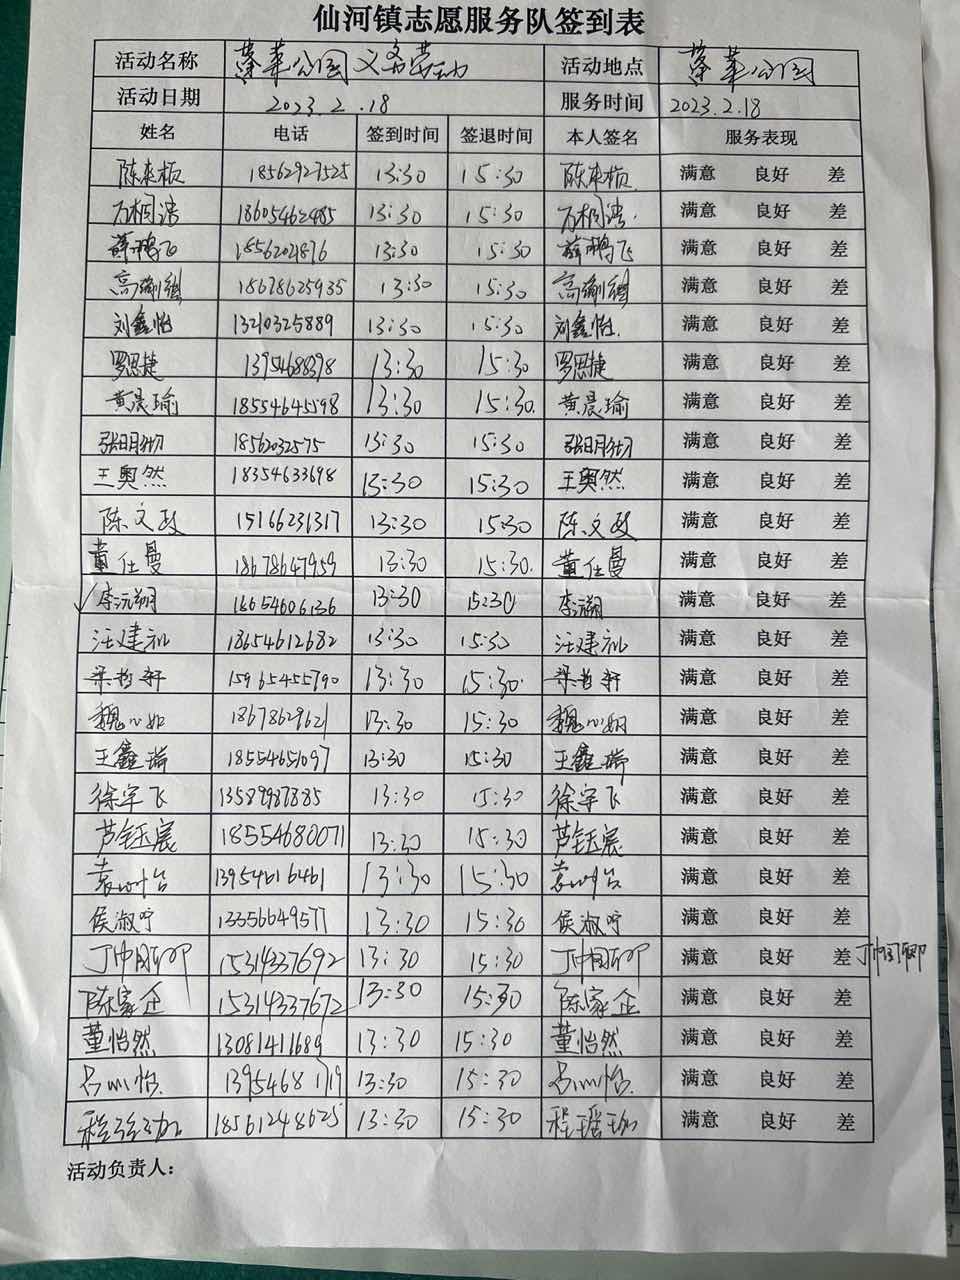 仙河镇志愿服务队签到表
活动名称 蓬莱公园义务劳动 活动地点 蓬莱公园
活动日期 2023.2.18 服务时间 2023.2.18
姓名 电话 签到时间 签退时间 本人签名 服务表现
陈来桢 18562927525 13:30 15:30 陈来桢 满意 良好 差
万相涛 18605462485 13:30 15:30 万相涛 满意 良好 差
薛鹏飞 1856204876 13:30 15:30 薛鹏飞 满意 良好 差
高 18678625935 13:30 15:30 高 满意 良好 差
刘鑫怡 13210325889 13:30 15:30 刘鑫怡. 满意 良好 差
罗思捷 1395468898 13:30 15:30 罗思捷 满意 良好 差
黄晨瑜 18554645598 13:30 15:30. 黄晨瑜 满意 良好 差
张明 18562032575 13:30 15:30 张明 满意 良好 差
王奥然 18354633698 13:30 15:30 王奥然 满意 良好 差
陈文政 15166231317 13:30 15:30 陈文政 满意 良好 差
董仕曼 18678647959 13:30 15:30. 董仕曼 满意 良好 差
李沅翊 18654606136 13:30 15:30 李沅翊 满意 良好 差
汪建礼 18654612682 13:30 15:30 汪建礼 满意 良好 差
梁哲轩 15965455790 13:30 15:30. 梁哲轩 满意 良好 差
魏心如 18678629621 13:30 15:30 魏心如 满意 良好 差
王鑫瑞 18554651097 13:30 15:30 王鑫瑞 满意 良好 差
徐宇飞 13589987885 13:30 15:30 徐宇飞 满意 良好 差
芦钰宸 18554680071 13:30 15:30 芦钰宸 满意 良好 差
袁 13954616461 13:30 15:30 袁 满意 良好 差
侯淑宁 13356649577 13:30 15:30 侯淑宁 满意 良好 差
丁 15314337692 13:30 15:30 丁 满意 良好 差 丁
陈家企 15314337672 13:30 15:30 陈家企 满意 良好 差
董怡然 13081411689 13:30 15:30 董怡然 满意 良好 差
吕 怡 13954681719 13:30 15:30 吕 怡 满意 良好 差
程瑶珈 18561248625 13:30 15:30 程瑶珈 满意 良好 差
活动负责人: